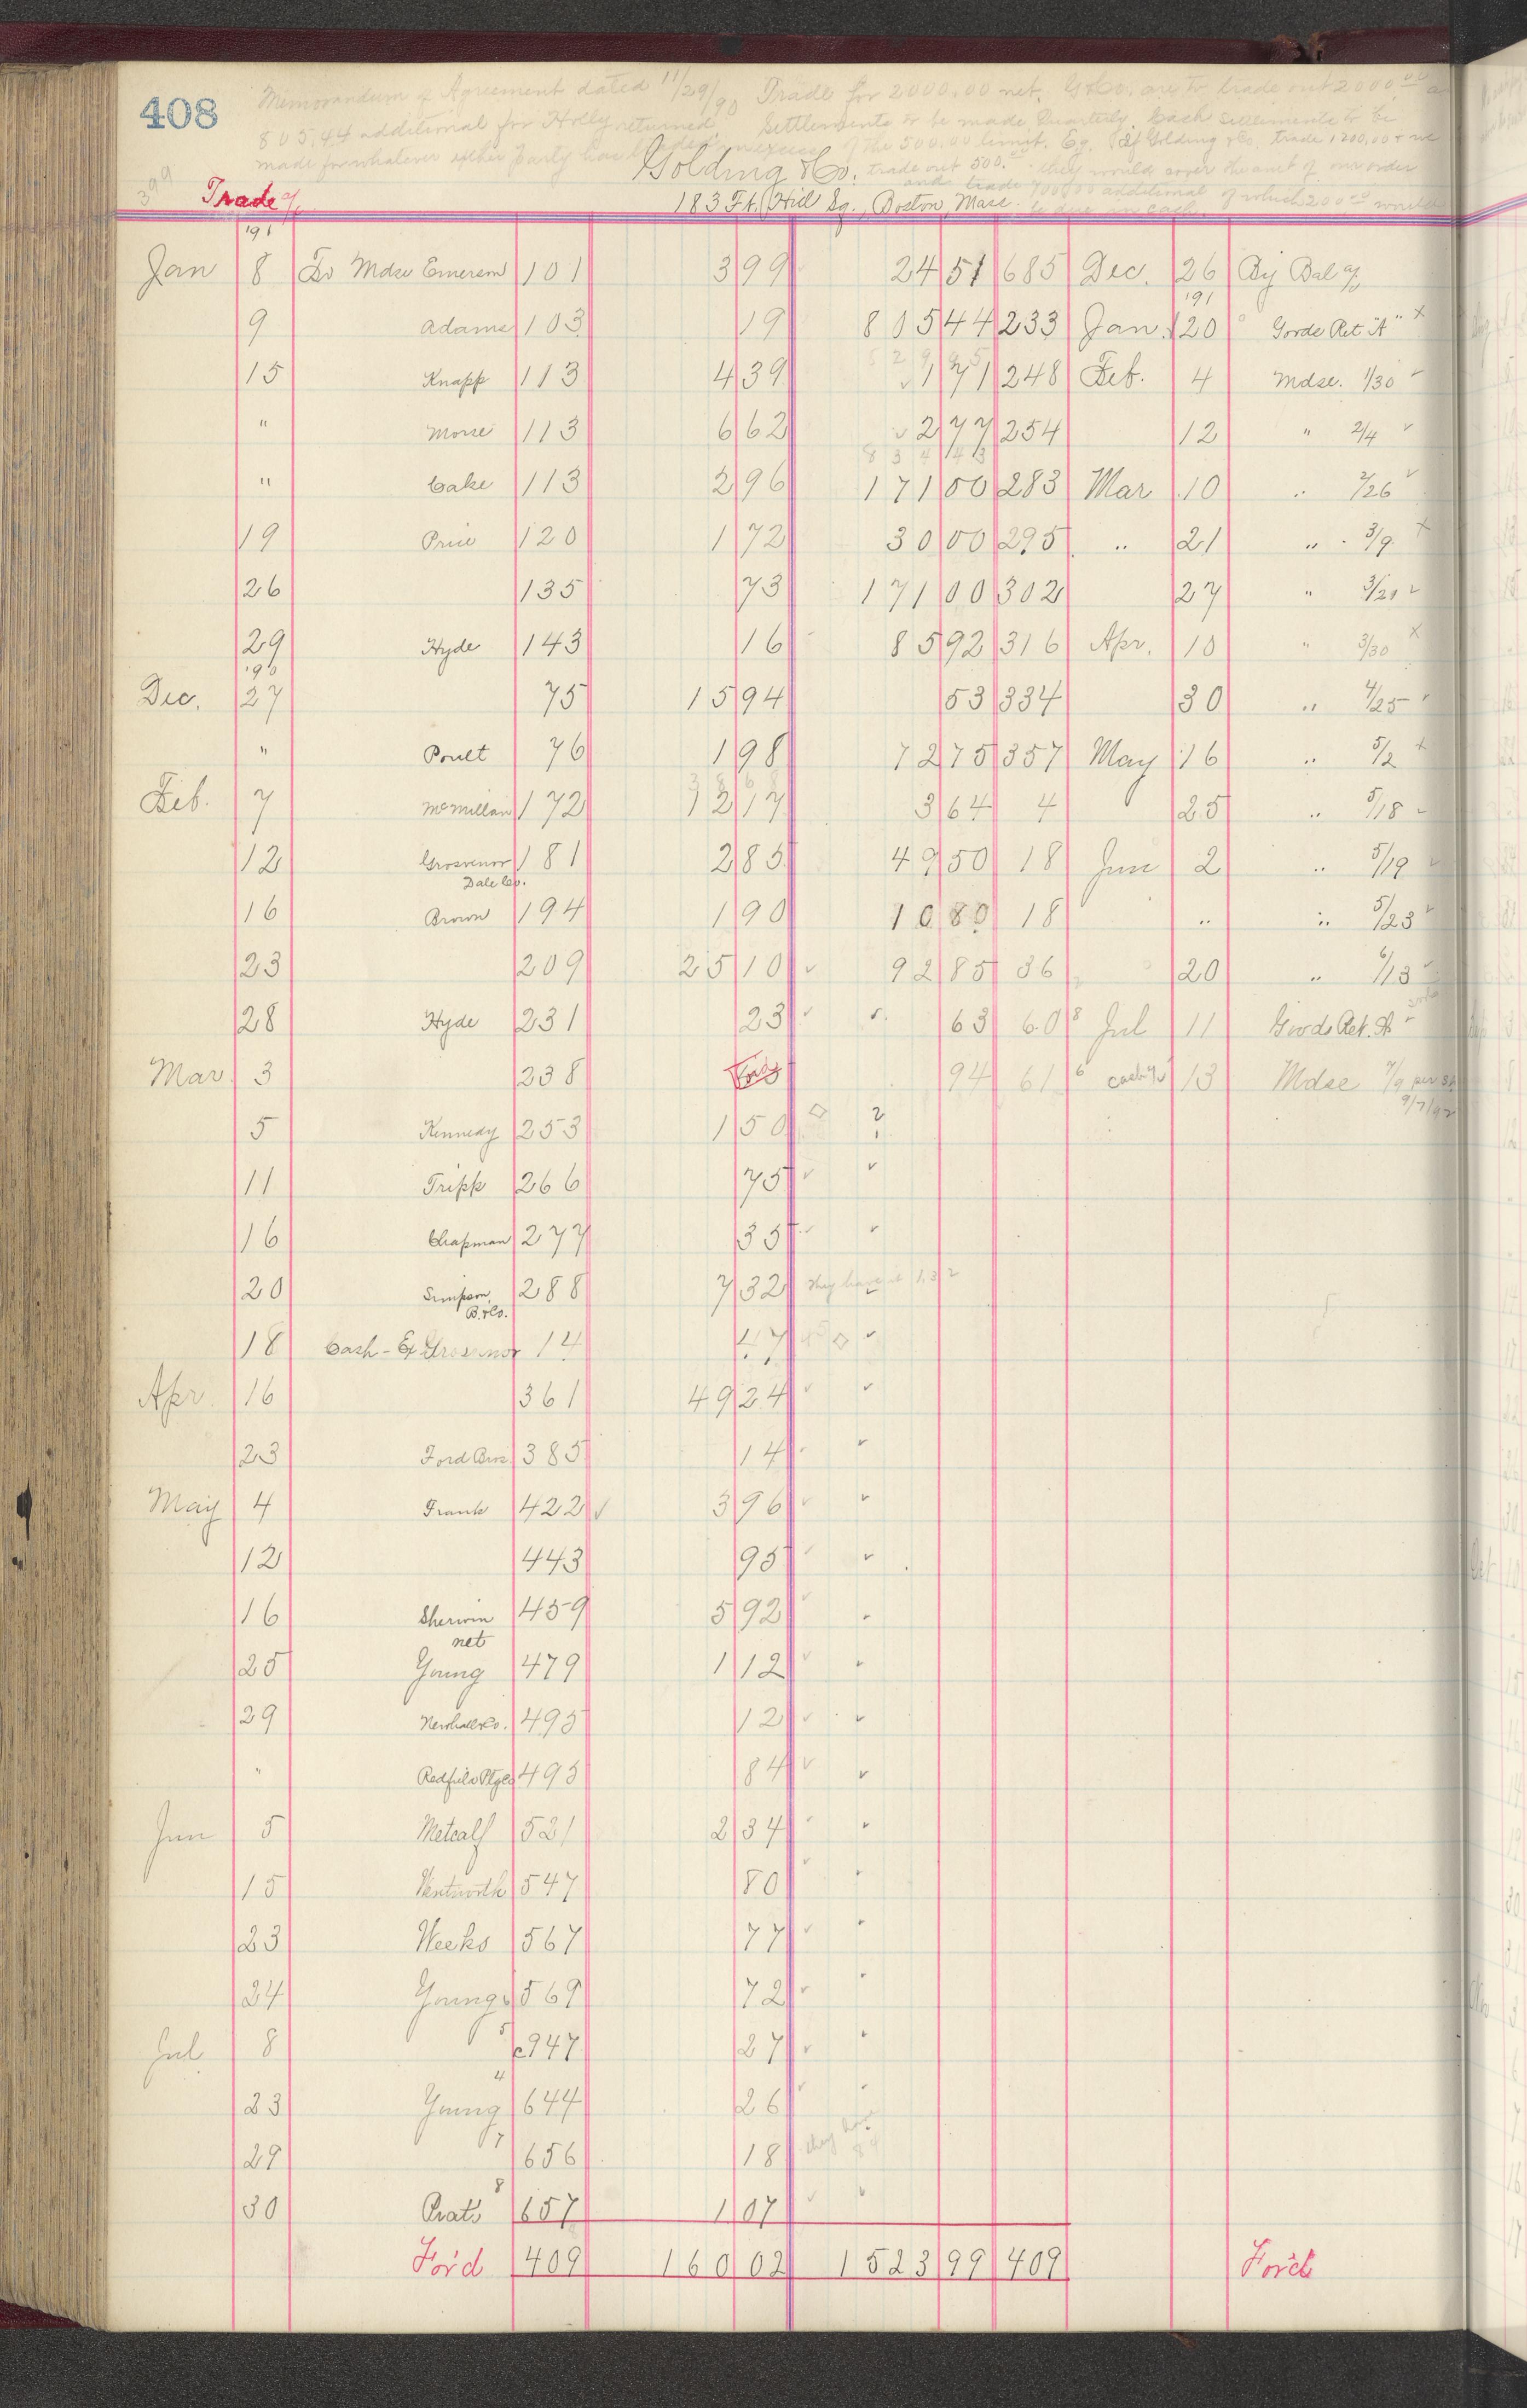 408
Memorandum of Agreement dated 11/29/90 Trade for 2000.00 net. G & Co. are to trade out 2000.00
805.44 additional for Holly returned. Settlements to be made Quarterly. Each settlements to be
made for whatever either party has traded in excess of the 500.00 limit. Eg. If Golding & Co. trade 1200.00 & we
trade out 500. they would cover the amt of our order
and trade 700.00 additional of which 200.00 would
be due in cash
399
Golding & Co.
Trade a/c
183 Ft. Hill Sq., Boston, Mass.
191
Jan 8 To Mdse Emerson 101 3 99 24 51 685 Dec. 26 By Bal a/c
191
9 Adams 103 19 805 44 233 Jan. 20 Goods Ret "A" x
829 95
15 Knapp 113 4 39 ✓ 1 71 248 Feb. 4 Mdse. 1/30 ✓
" Morse 113 6 62 ✓ 2 77 254 12 " 2/4 ✓
834 43
" Cake 113 2 96 171 00 283 Mar 10 " 2/26 ✓
19 Price 120 1 72 30 00 295 " 21 " 3/9 x
26 135 73 171 00 302 27 " 3/21 ✓
29 Hyde 143 16 85 92 316 Apr. 10 " 3/30 x
190
Dec. 27 75 15 94 53 334 30 " 4/25 ✓
" Poult 76 1 98 72 75 357 May 16 " 5/2 x
38 68
Feb. 7 McMillan 172 12 17 3 64 4 25 " 5/18 ✓
12 Grosvenor 181 2 85 49 50 18 Jun 2 " 5/19 ✓
Dale Co.
16 Brown 194 1 90 10 80 18 " " 5/23 ✓
23 209 25 10 ✓ 92 85 36 20 " 6/13 ✓
28 Hyde 231 23 ✓ 63 60 8 Jul 11 Goods Ret. A ✓
Mar. 3 238 94 61 6 cash a/c 13 Mdse 7/9 per st
9/7/92
5 Kennedy 253 1 50 ?
11 Tripp 266 75 ✓ ✓
16 Chapman 277 35 ✓ ✓
20 Simpson 288 7 32 they have it 1.32
B. & Co.
18 Cash - Ex Grosvenor 14 47 ✓
Apr. 16 361 49 24 ✓ ✓
23 Ford Bros. 385 14 ✓
May 4 Frank 422 ✓ 3 96 ✓ ✓
12 443 95 ✓ ✓
16 Sherwin 459 5 92 ✓
net
25 Young 479 1 12 ✓ ✓
29 Newhall & Co. 495 12 ✓ ✓
" Redfield Ptg Co 495 84 ✓ ✓
Jun 5 Metcalf 521 2 34 ✓ ✓
15 Wentworth 547 80 ✓ ✓
23 Weeks 567 77 ✓ ✓
24 Youngs 569 72 ✓ ✓
5
Jul 8 c947 27 ✓ ✓
4
23 Young 644 26 ✓ ✓
7
29 656 18 they have 84
8
30 Prats 657 1 07 ✓ ✓
For'd 409 160 02 1523 99 409 For'd